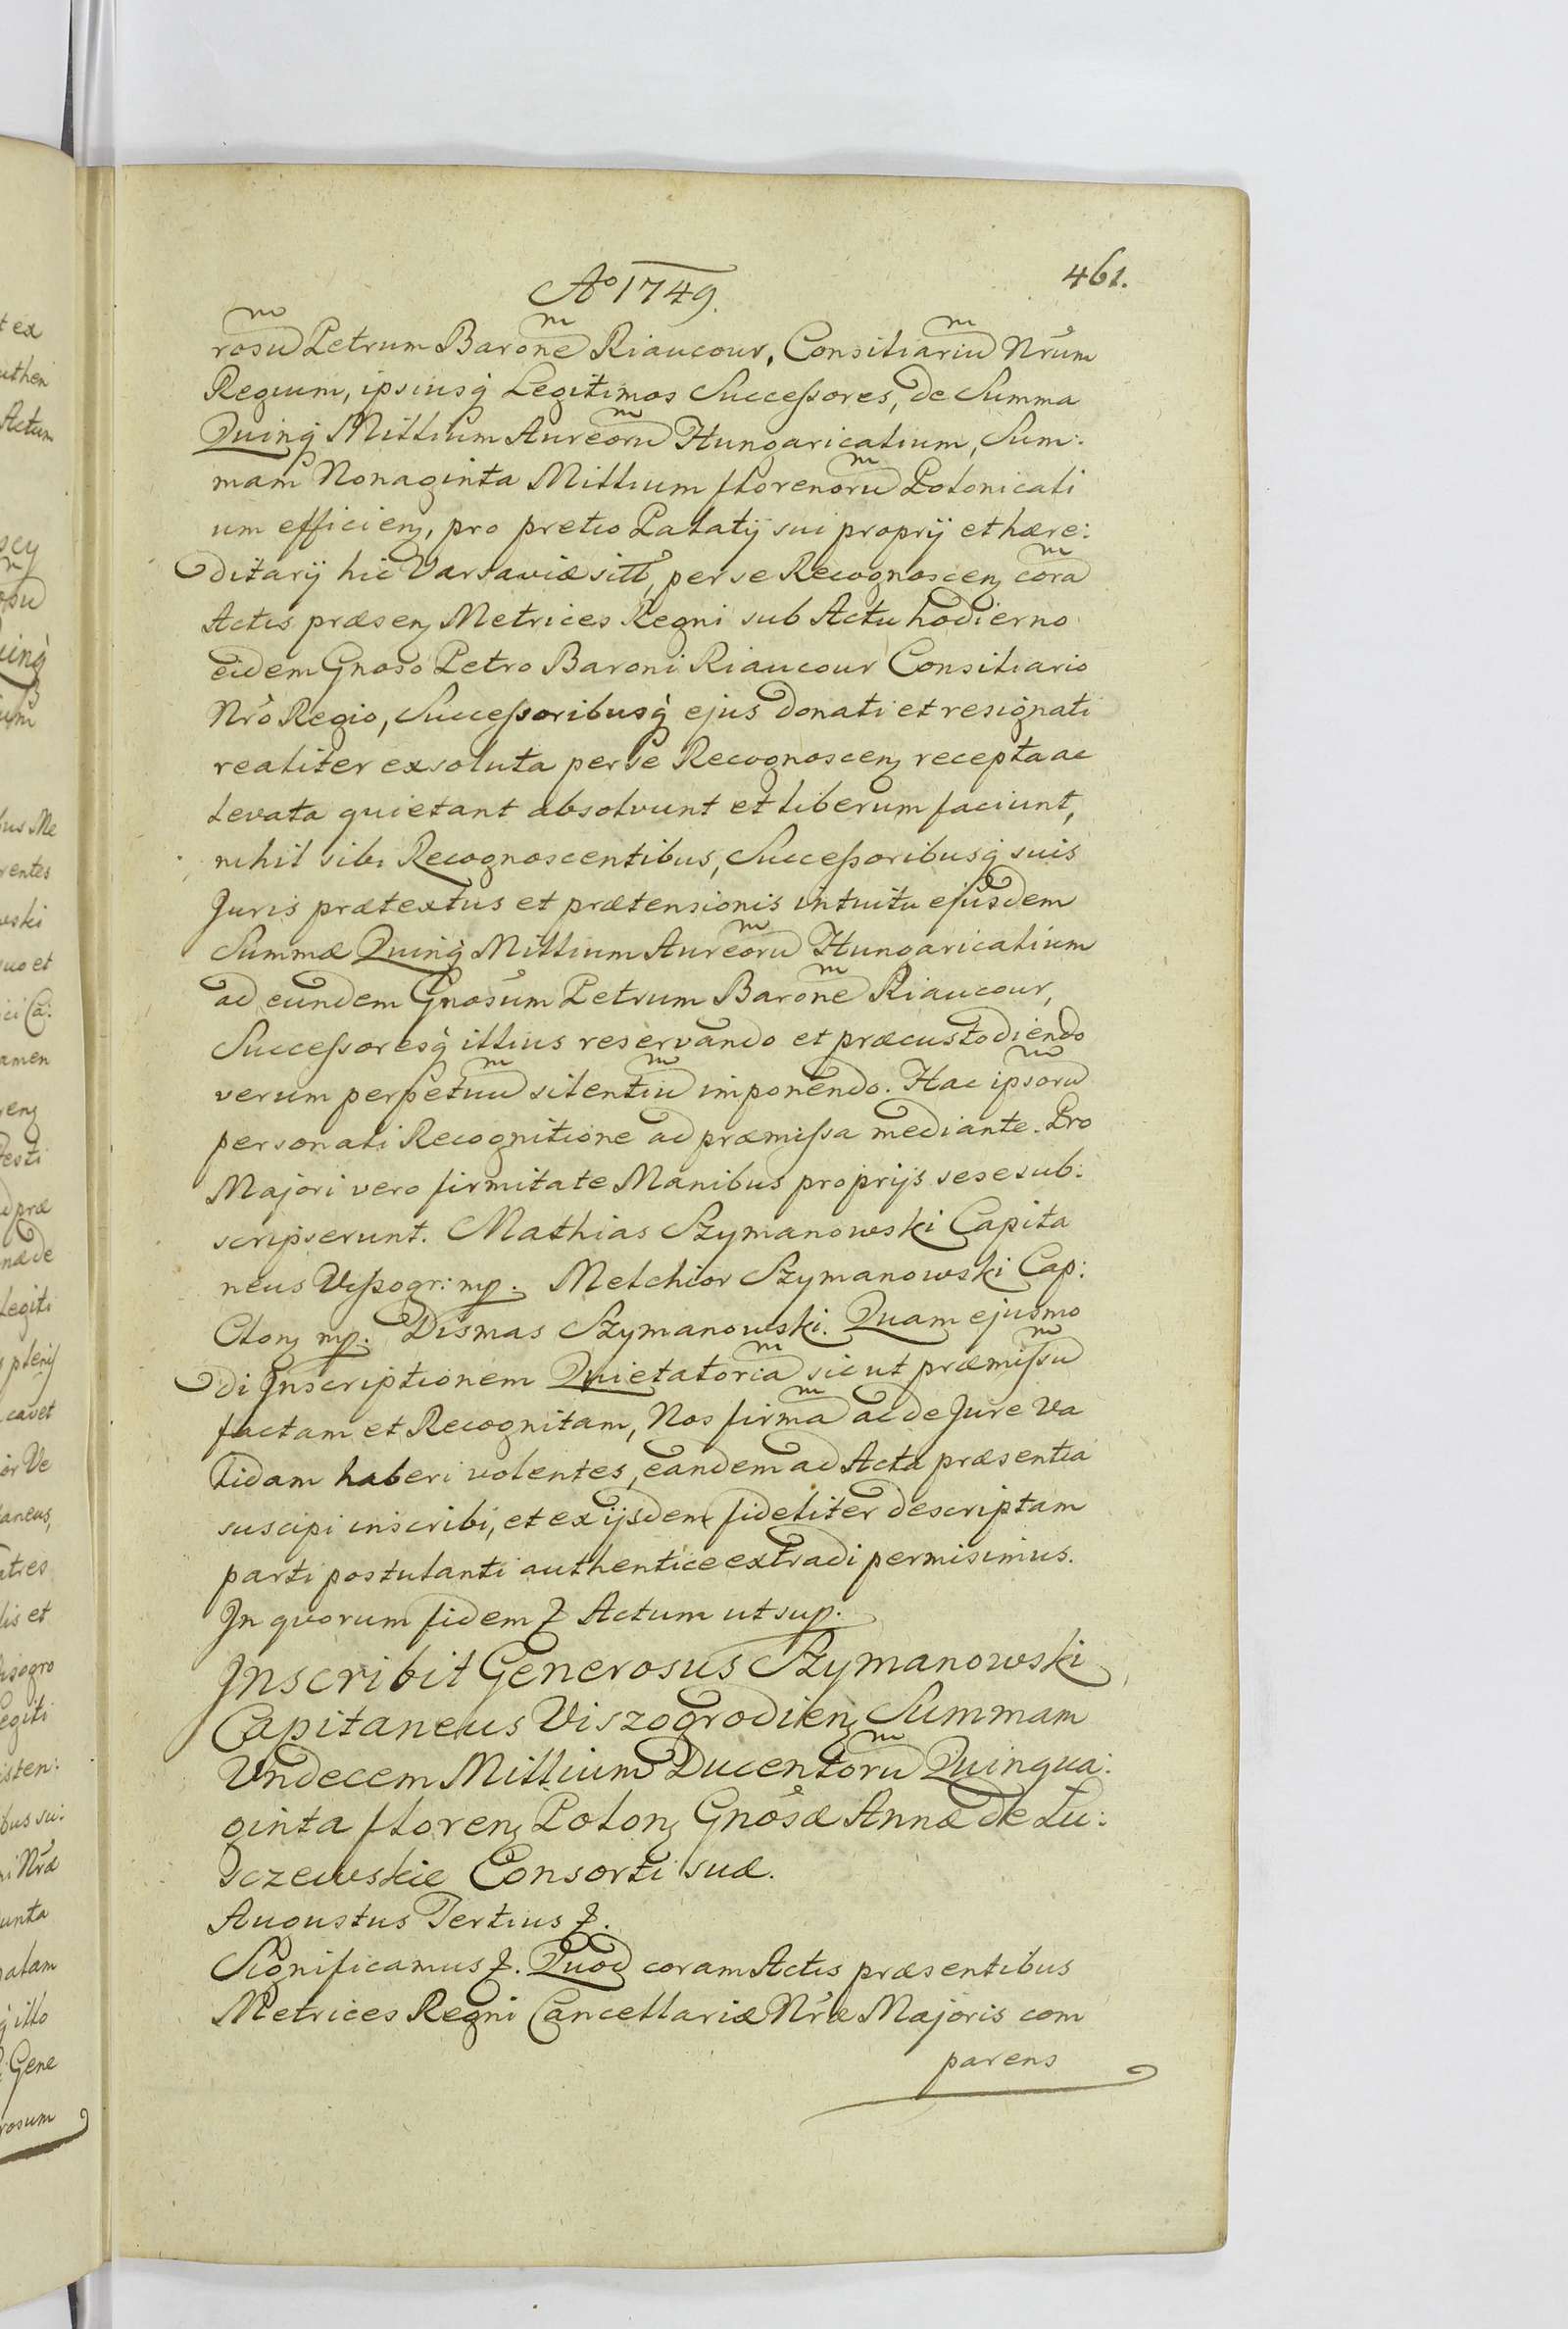 Aº 1749.
461.
rosuᵐ Petrum Baroneᵐ Riaucour, Consiliariuᵐ Nrum
Regium, ipsiusq́ Legitimos Successores, de Summa
Quinq́ Millium Aureoruᵐ Hungaricalium, Sum:
mam Nonaginta Millium florenoruᵐ Polonicali
um efficien, pro pretio Palatij sui proprij et hære:
ditarij hic Varsaviæ sitt, per se Recognoscen coraᵐ
Actis præsen Metrices Regni sub Actu hodierno
eidem Gnoso Petro Baroni Riaucour Consiliario
Nro Regio, Successoribusq́ ejus donati et resignati
realiter exsoluta per se Recognoscen recepta ac
levata quietant absolvunt et liberum faciunt,
nihil sibi Recognoscentibus, Successoribusq́ suis
Juris prætextus et prætensionis intuitu ejusdem
Summæ Quinq́ Millium Aureoruᵐ Hungaricalium
ad eundem Gnosum Petrum Baroneᵐ Riaucour,
Successoresq́ illius reservando et præcustodiendo
verum perpetuuᵐ silentiuᵐ imponendo. Hac ipsoruᵐ
personali Recognitione ad præmissa mediante. Pro
Majori vero firmitate Manibus proprijs sese sub:
scripserunt. Mathias Szymanowski Capita
neus Vissogr: mp. Melchior Szymanowski Cap:
Clon mp. Dismas Szymanowski. Quam ejusmo
di Inscriptionem Quietatoriaᵐ sic ut præmissuᵐ
factam et Recognitam, Nos firmaᵐ ac de Jure Va
lidam haberi volentes, eandem ad Acta præsentia
suscipi inscribi, et ex ijsdem fideliter descriptam
parti postulanti authentice extradi permisimus.
In quorum fidem ꝛ Actum ut sup.
Inscribit Generosus Szymanowski
Capitaneus Viszogrodien Summam
Vndecem Millium Ducentoruᵐ Quinqua:
ginta floren Polon Gnosæ Annæ de Lu:
szczewskie Consorti suæ.
Augustus Tertius ꝛ.
Significamus ꝛ. Quod coram Actis præsentibus
Metrices Regni Cancellariæ Nræ Majoris com
parens